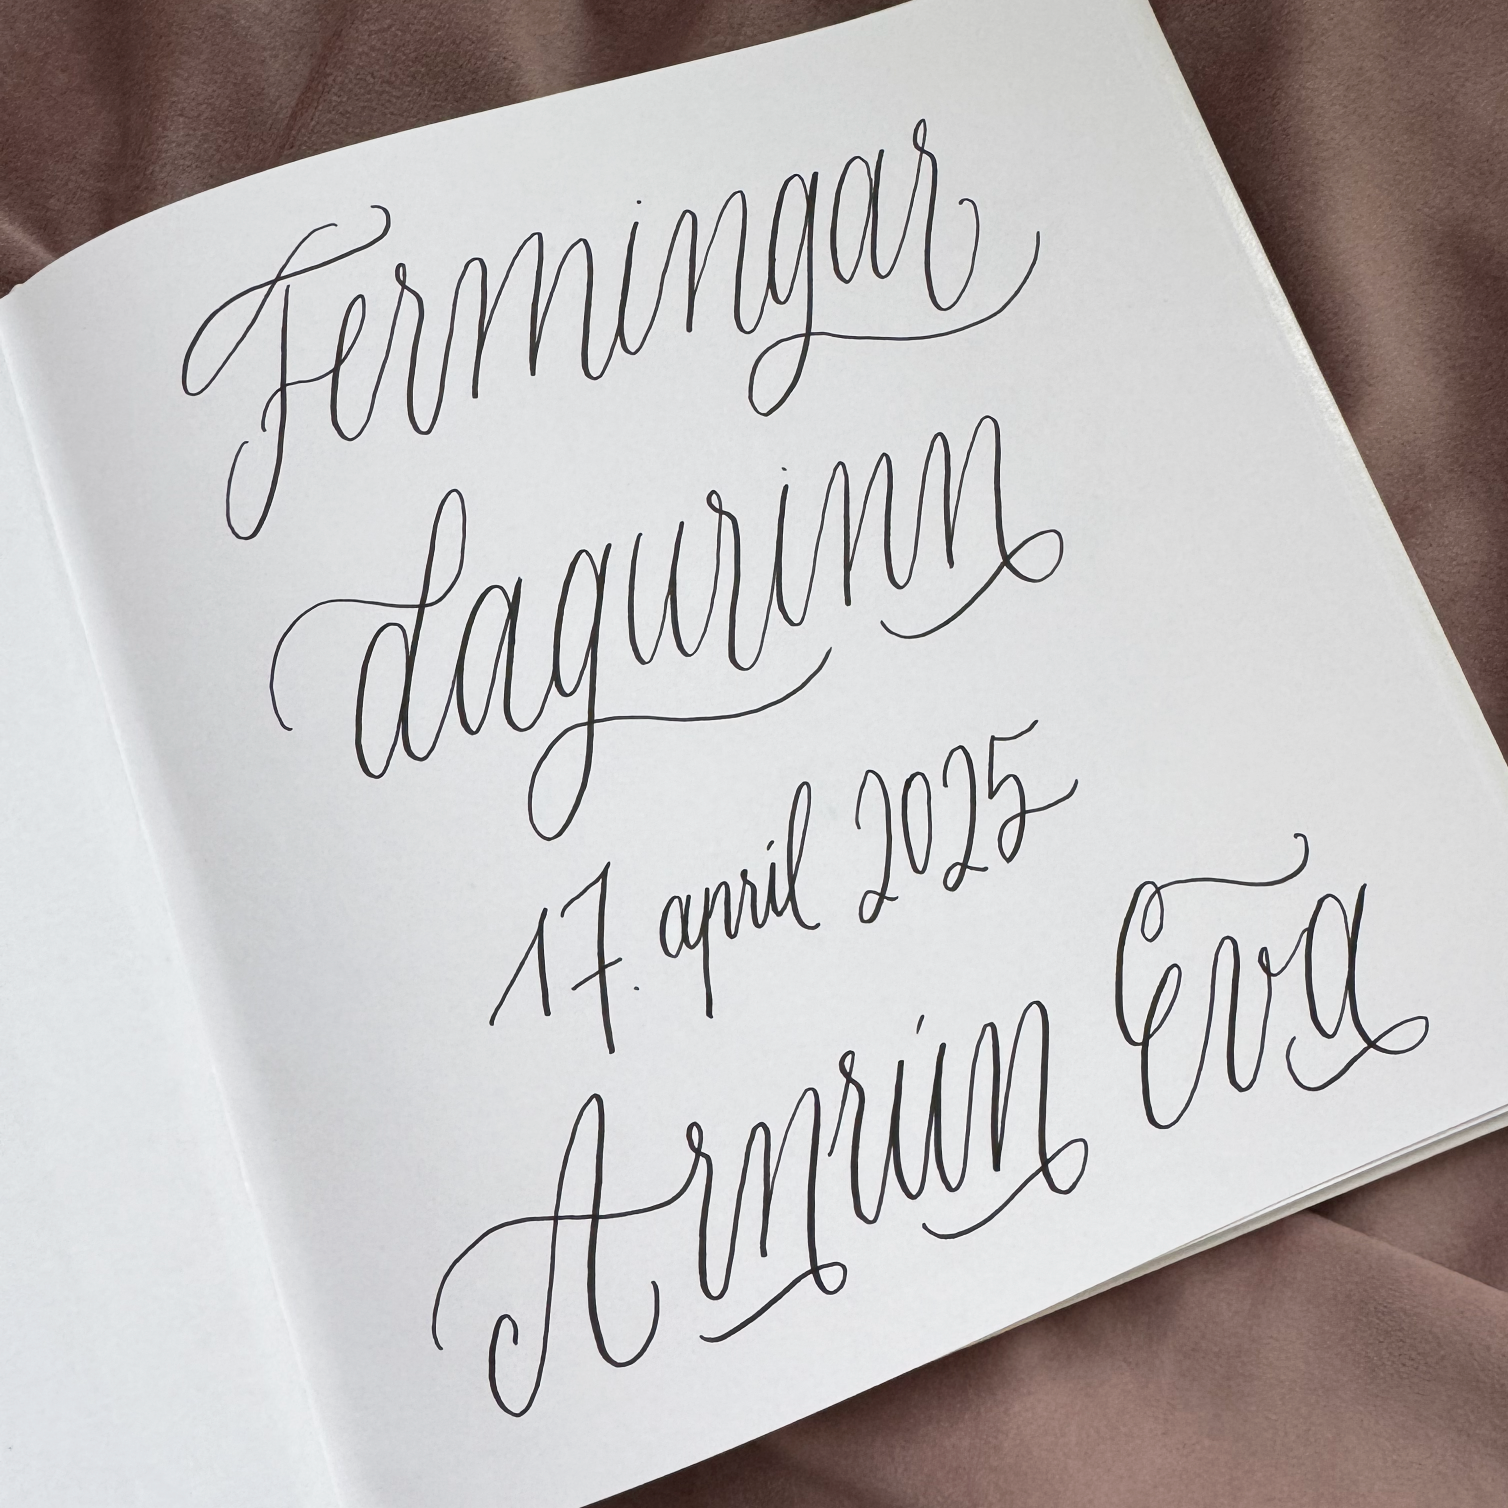 Fermingar
dagurinn
17. april 2025
Arnrún Eva